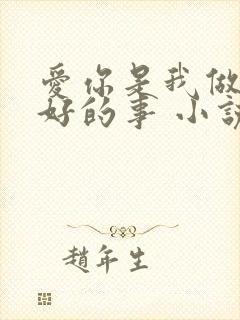 愛你是我做
好的事 小說
趙年生